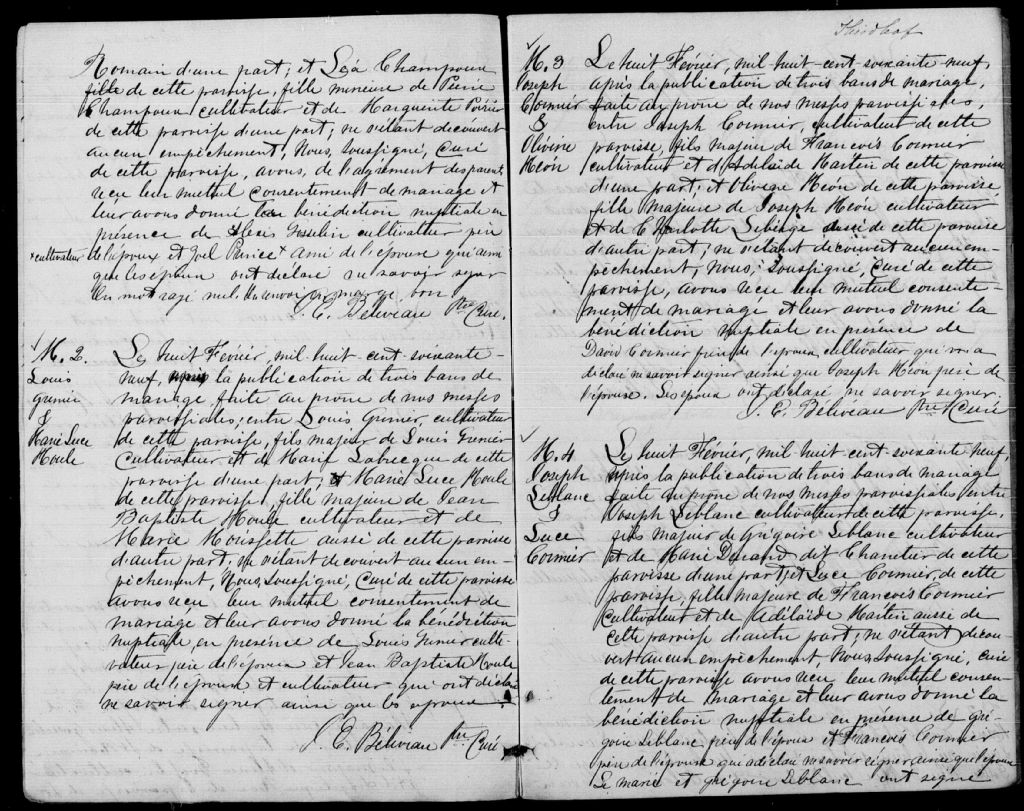 Romain d'une part; et Léa Champoux
fille de cette paroisse, fille mineure de Pierre
Champoux cultivateur et de Marguerite Poirier
de cette paroisse d'une part; ne s'étant découvert
aucun empêchement, Nous, soussigné, Curé
de cette paroisse, avons, de l'agrément des parents,
reçu leur mutuel consentement de mariage et
leur avons donné la bénédiction nuptiale en
présence de Alexis Gosselin cultivateur père
+cultivateur de l'époux et Joel Prince + ami de l'épouse qui ainsi
que les époux ont déclaré ne savoir signer
Un mot rayé nul. Un renvoi en marge, bon.
J. E. Béliveau Ptre Curé.
M. 2.
Louis
Grenier
&
Marie Luce
Houle
Le huit Février, mil huit-cent-soixante-
neuf, la publication de trois bans de
mariage faite au prône de nos messes
paroissiales, entre Louis Grenier, cultivateur
de cette paroisse, fils majeur de Louis Grenier
cultivateur et de Marie Labrecque de cette
paroisse d'une part; et Marie Luce Houle
de cette paroisse, fille majeure de Jean
Baptiste Houle cultivateur et de
Marie Houssette aussi de cette paroisse
d'autre part; ne s'étant découvert aucun em-
pêchement, Nous, Soussigné, Curé de cette paroisse
avons reçu leur mutuel consentement de
mariage et leur avons donné la bénédiction
nuptiale, en présence de Louis Grenier culti-
vateur père de l'époux et Jean Baptiste Houle
père de l'épouse et cultivateur qui ont déclaré
ne savoir signer ainsi que les époux.
J. E. Béliveau Ptre Curé
M. 3
Joseph
Cormier
&
Olivine
Héon
Le huit Février, mil huit-cent soixante neuf
après la publication de trois bans de mariage,
faite au prône de nos messes paroissiales,
entre Joseph Cormier, cultivateur de cette
paroisse, fils majeur de Francois Cormier
cultivateur et d'Adelaide Martin de cette paroisse
d'une part; et Olivine Héon de cette paroisse,
fille majeure de Joseph Héon cultivateur
et de Charlotte Leblage aussi de cette paroisse
d'autre part; ne s'étant découvert aucun em-
pêchement, Nous, soussigné, Curé de cette
paroisse, avons reçu leur mutuel consente-
ment de mariage et leur avons donné la
bénédiction nuptiale en présence de
David Cormier frère de l'époux, cultivateur qui a
déclaré ne savoir signer ainsi que Joseph Héon père de
l'épouse. Les époux ont déclaré ne savoir signer.
J. E. Béliveau Ptre Curé
M. 4
Joseph
Leblanc
&
Luce
Cormier
Le huit Février, mil huit-cent soixante neuf,
après la publication de trois bans de mariage
faite au prône de nos messes paroissiales entre
Joseph Leblanc cultivateur de cette paroisse,
fils majeur de Grégoire Leblanc cultivateur
et de Marie Durand dit Chantier de cette
paroisse d'une part; et Luce Cormier, de cette
paroisse, fille majeure de Francois Cormier
cultivateur et de Adélaïde Martin aussi de
cette paroisse d'autre part; ne s'étant décou-
vert aucun empêchement, Nous, soussigné, curé
de cette paroisse avons reçu leur mutuel consen-
tement de mariage et leur avons donné la
bénédiction nuptiale en présence de gré-
goire Leblanc, père de l'époux et Francois Cormier
père de l'épouse qui a déclaré ne savoir signer ainsi que l'épouse
Le marié et grégoire Leblanc ont signé